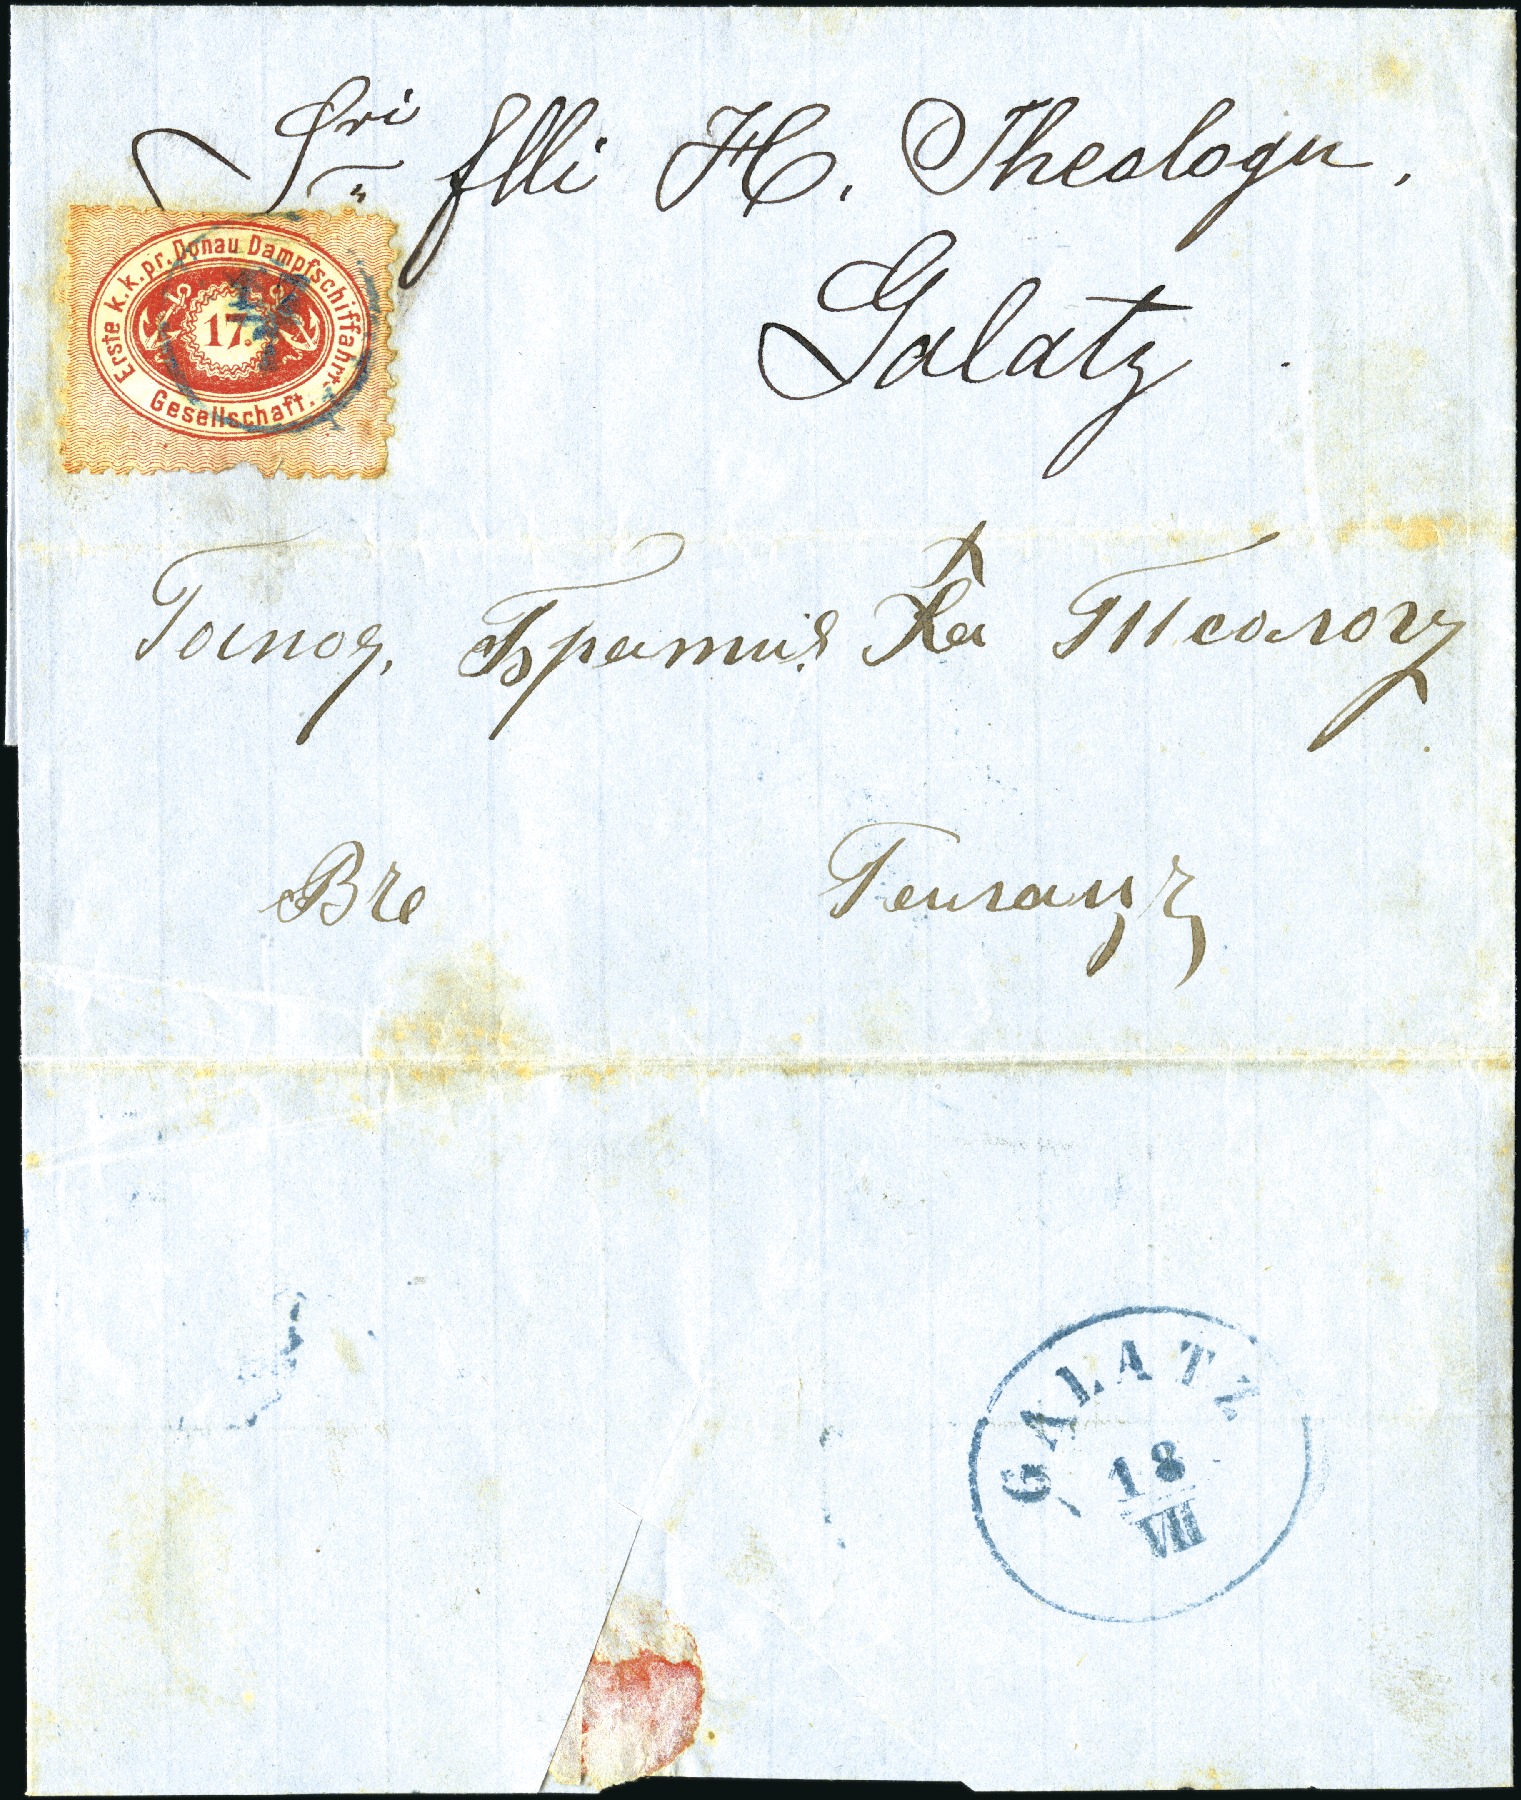 Sri flli H. Theologu,
Galatz
Erste k.k.pr. Donau Dampfschiffahrt.
17.
Gesellschaft.
17
Господ. Братия Ха Теологу
Въ Галацъ
GALATZ
18
VII